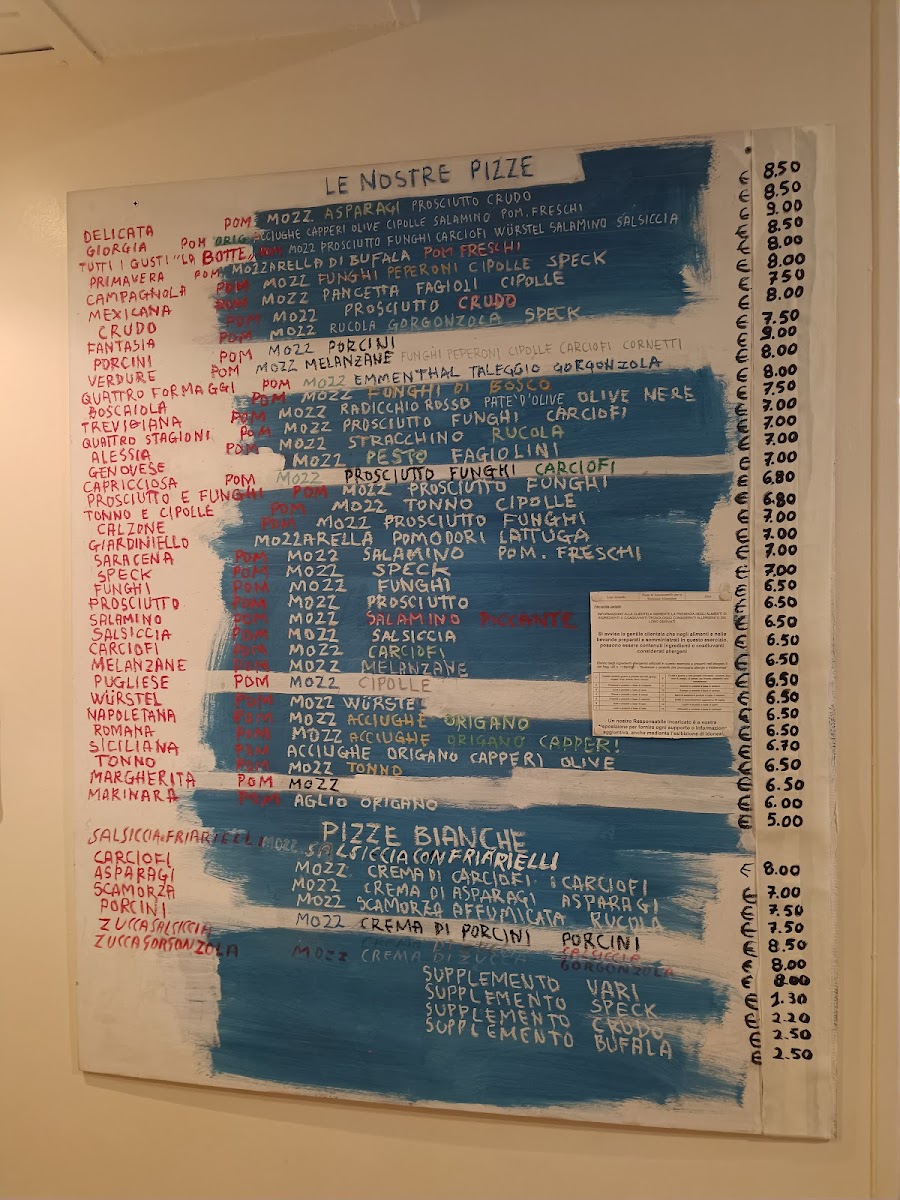 LE NOSTRE PIZZE
DELICATA POM MOZZ ASPARAGI PROSCIUTTO CRUDO € 8.50
GIORGIA POM ORIG ACCIUGHE CAPPERI OLIVE CIPOLLE SALAMINO POM. FRESCHI € 8.50
TUTTI I GUSTI "LA BOTTE" POM MOZZ PROSCIUTTO FUNGHI CARCIOFI WÜRSTEL SALAMINO SALSICCIA € 9.00
PRIMAVERA POM MOZZARELLA DI BUFALA POM FRESCHI € 8.50
CAMPAGNOLA POM MOZZ FUNGHI PEPERONI CIPOLLE SPECK € 8.00
MEXICANA POM MOZZ PANCETTA FAGIOLI CIPOLLE € 8.00
CRUDO POM MOZZ PROSCIUTTO CRUDO € 7.50
FANTASIA POM MOZZ RUCOLA GORGONZOLA SPECK € 8.00
PORCINI POM MOZZ PORCINI € 7.50
VERDURE POM MOZZ MELANZANE FUNGHI PEPERONI CIPOLLE CARCIOFI CORNETTI € 9.00
QUATTRO FORMAGGI POM MOZZ EMMENTHAL TALEGGIO GORGONZOLA € 8.00
BOSCAIOLA POM MOZZ FUNGHI DI BOSCO € 8.00
TREVIGIANA POM MOZZ RADICCHIO ROSSO PATE' D'OLIVE OLIVE NERE € 7.50
QUATTRO STAGIONI POM MOZZ PROSCIUTTO FUNGHI CARCIOFI € 7.00
ALESSIA POM MOZZ STRACCHINO RUCOLA € 7.00
GENOVESE MOZZ PESTO FAGIOLINI € 7.00
CAPRICCIOSA POM MOZZ PROSCIUTTO FUNGHI CARCIOFI € 7.00
PROSCIUTTO E FUNGHI POM MOZZ PROSCIUTTO FUNGHI € 6.80
TONNO E CIPOLLE POM MOZZ TONNO CIPOLLE € 6.80
CALZONE POM MOZZ PROSCIUTTO FUNGHI € 7.00
GIARDINIELLO MOZZARELLA POMODORI LATTUGA € 7.00
SARACENA POM MOZZ SALAMINO POM. FRESCHI € 7.00
SPECK POM MOZZ SPECK € 7.00
FUNGHI POM MOZZ FUNGHI € 6.50
PROSCIUTTO POM MOZZ PROSCIUTTO € 6.50
SALAMINO POM MOZZ SALAMINO PICCANTE € 6.50
SALSICCIA POM MOZZ SALSICCIA €
CARCIOFI POM MOZZ CARCIOFI € 6.50
MELANZANE POM MOZZ MELANZANE € 6.50
PUGLIESE POM MOZZ CIPOLLE € 6.50
WÜRSTEL POM MOZZ WÜRSTEL € 6.50
NAPOLETANA POM MOZZ ACCIUGHE ORIGANO € 6.50
ROMANA POM MOZZ ACCIUGHE ORIGANO CAPPERI € 6.70
SICILIANA POM ACCIUGHE ORIGANO CAPPERI OLIVE € 6.50
TONNO POM MOZZ TONNO € 6.50
MARGHERITA POM MOZZ € 6.00
MARINARA POM AGLIO ORIGANO € 5.00
PIZZE BIANCHE
SALSICCIA e FRIARIELLI MOZZ SALSICCIA CON FRIARIELLI € 8.00
CARCIOFI MOZZ CREMA DI CARCIOFI i CARCIOFI € 7.00
ASPARAGI MOZZ CREMA DI ASPARAGI ASPARAGI € 7.50
SCAMORZA MOZZ SCAMORZA AFFUMICATA RUCOLA € 7.50
PORCINI MOZZ CREMA DI PORCINI PORCINI € 8.50
ZUCCA SALSICCIA CREMA DI ZUCCA SALSICCIA € 8.00
ZUCCA GORGONZOLA MOZZ CREMA DI ZUCCA GORGONZOLA € 8.00
SUPPLEMENTO VARI € 1.30
SUPPLEMENTO SPECK € 2.20
SUPPLEMENTO CRUDO € 2.50
SUPPLEMENTO BUFALA € 2.50
Si avvisa la gentile clientela che negli alimenti e nelle
bevande preparati e somministrati in questo esercizio,
possono essere contenuti ingredienti o coadiuvanti
considerati allergeni
Un nostro Responsabile incaricato è a vostra